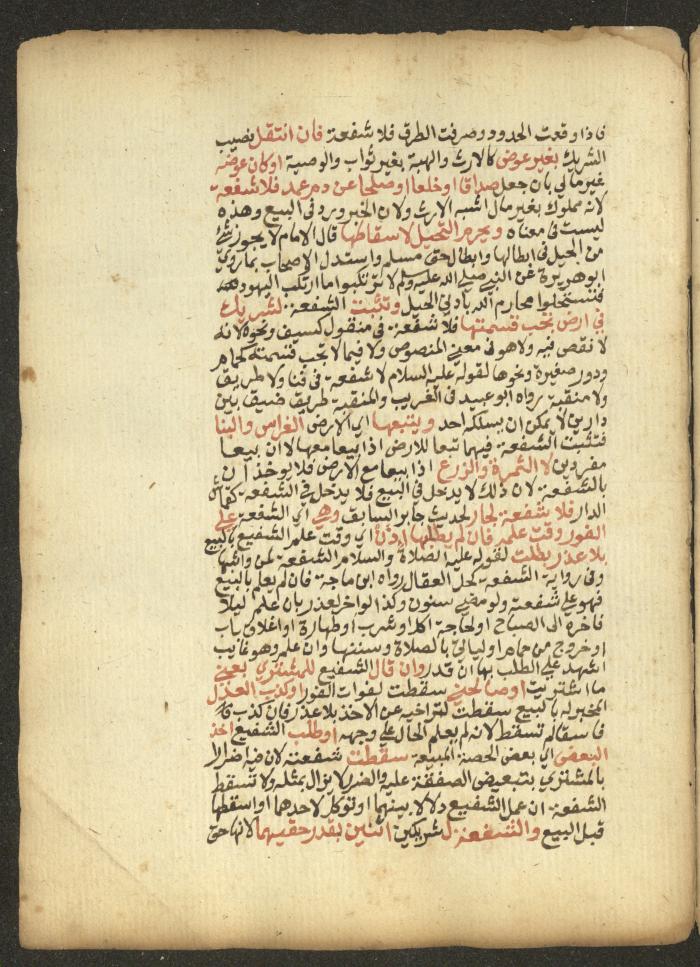 فاذا وقعت الحدود وصرفت الطرق فلا شفعة فان انتقل نصيب
الشريك بغير عوض كالارث والهبة بغير ثواب والوصية او كان عوضه
غير مالي بان جعل صداقا او خلعا او صلحا عن دم عمد فلا شفعة
لانه مملوك بغير مال اشبه الارث ولان الخبر ورد في البيع وهذه
ليست في معناه ويحرم التحيل لاسقاطها قال الامام لا يجوز شئ
من الحيل في ابطالها وابطال حق مسلم واستدل الاصحاب بما روى
ابو هريرة عن النبي صلى الله عليه وسلم لا ترتكبوا ما ارتكب اليهود
فتستحلوا محارم الله بادنى الحيل وتثبت الشفعة لشريك
في ارض تجب قسمتها فلا شفعة في منقول كسيف ونحوه لانه
لا نص فيه ولا هو في معنى المنصوص ولا فيما لا تجب قسمته كحمام
ودور صغيرة ونحوها لقوله عليه السلام لا شفعة في فنا ولا طريق
ولا منقبة رواه ابو عبيد في الغريب والمنقبة طريق ضيق بين
دارين لا يمكن ان يسلكه احد ويتبعها اي الارض الغراس والبنا
فتثبت الشفعة فيهما تبعا للارض اذا بيعا معها لا ان بيعا
مفردين لا الثمرة والزرع اذا بيعا مع الارض فلا يوخذان
بالشفعة لان ذلك لا يدخل في البيع فلا يدخل في الشفعة كقماش
الدار فلا شفعة لجار لحديث جابر السابق وهي اي الشفعة على
الفور وقت علمه فان لم يطلبها اذن اي وقت علم الشفيع بالبيع
بلا عذر بطلت لقوله عليه الصلاة والسلام الشفعة لمن واثبها
وفي رواية الشفعة كحل العقال رواه ابن ماجة فان لم يعلم بالبيع
فهو على شفعته ولو مضى سنون وكذا لو اخر لعذر بان علم ليلا
فاخره الى الصباح او لحاجة اكل او شرب او طهارة او اغلاق باب
او خروج من حمام او لياتي بالصلاة وسننها وان علم وهو غايب
اشهد على الطلب بها ان قدر وان قال الشفيع للمشتري بعني
ما اشتريت او صالحني سقطت لفوات الفور او كذب العدل
المخبر له بالبيع سقطت لتراخيه عن الاخذ بلا عذر فان كذب
فاسقا لم تسقط لانه لم يعلم الحال على وجهه او طلب الشفيع اخذ
البعض اي بعض الحصة المبيعة سقطت شفعته لان فيه ضرارا
بالمشتري بتبعيض الصفقة عليه والضرر لا يزال بمثله ولا تسقط
الشفعة ان عمل الشفيع دلالا بينهما او توكل لاحدهما او اسقطها
قبل البيع والشفعة لشريكين اثنين بقدر حقيهما لانها حق